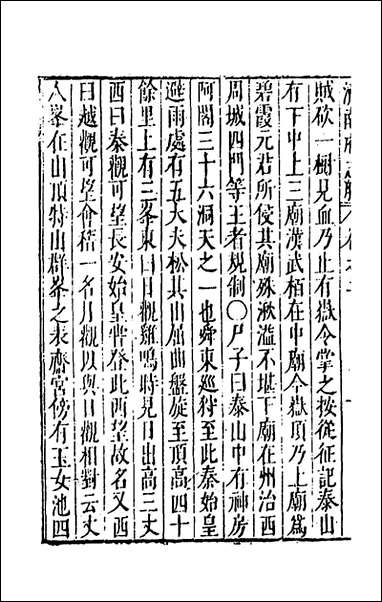 賊砍一樹見血乃止有嶽令掌之按從征記泰山
有下中上三廟漢武栢在中廟今嶽頂乃上廟為
碧霞元君所侵其廟殊湫溢不堪下廟在州治西
周城四門等王者規制○尸子曰泰山中有神房
阿閣三十六洞天之一也舜東巡狩至此秦始皇
避雨處有五大夫松其山屈曲盤旋至頂高四十
餘里上有三峯東曰日觀雞鳴時見日出高三丈
西曰秦觀可望長安始皇甞登此西望故名又西
曰越觀可望會稽一名月觀以與日觀相對云丈
人峯在山頂特山群峯之表齋宮傍有玉女池四